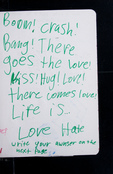 Boom! Crash!
Bang! There
goes the love!
Kiss! Hug! Love!
there comes love!
Life is...
Love Hate
write your answer on the
next Page